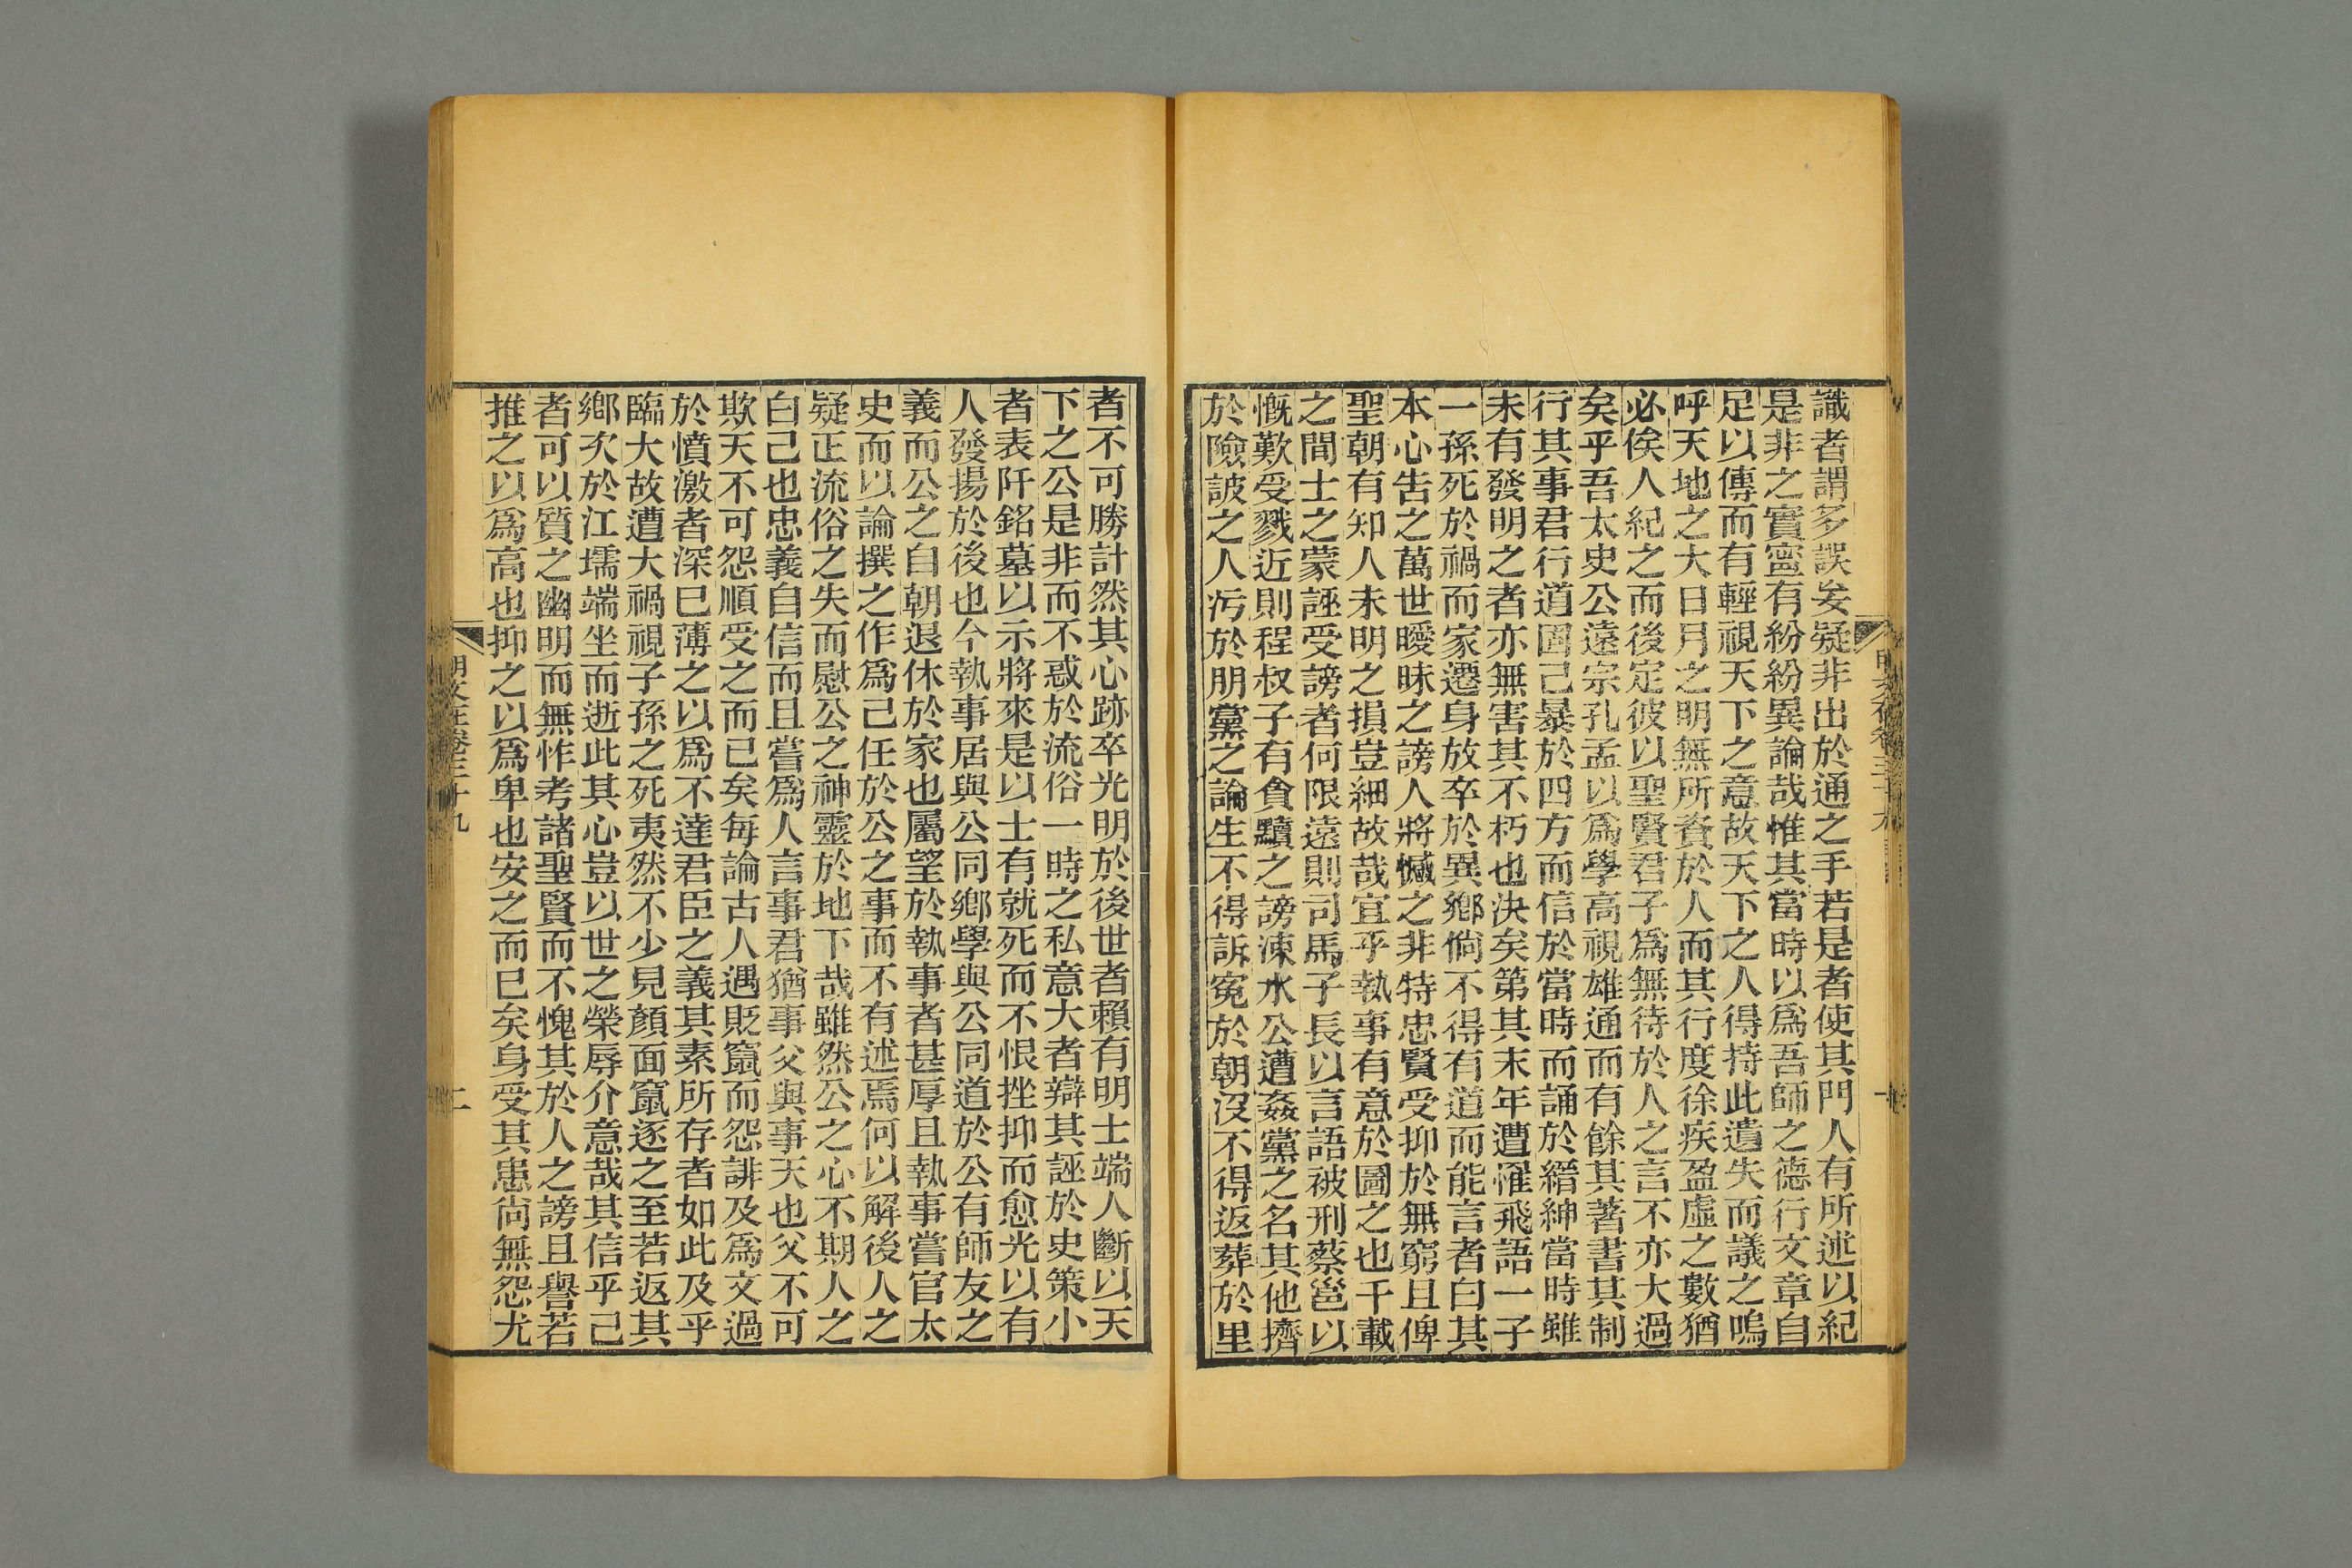 識者謂多誤妄疑非出於通之手若是者使其門人有所述以紀
是非之實寧有紛紛異論哉惟其當時以爲吾師之德行文章自
足以傳而有輕視天下之意故天下之人得持此遺失而議之嗚
呼天地之大日月之明無所資於人而其行度徐疾盈虛之數猶
必俟人紀之而後定彼以聖賢君子爲無待於人之言不亦大過
矣乎吾太史公遠宗孔孟以爲學高視雄通而有餘其著書其制
行其事君行道固己暴於四方而信於當時而誦於縉紳當時雖
未有發明之者亦無害其不朽也決矣第其末年遭罹飛語一子
一孫死於禍而家遷身放卒於異鄉倘不得有道而能言者曰其
本心告之萬世曖昧之謗人將憾之非特忠賢受抑於無窮且俾
聖朝有知人未明之損豈細故哉宜乎執事有意於圖之也千載
之間士之蒙誣受謗者何限遠則司馬子長以言語被刑蔡邕以
慨歎受戮近則程叔子有貪黷之謗涑水公遭姦黨之名其他擠
於險詖之人污於朋黨之論生不得訴寃於朝沒不得返葬於里
者不可勝計然其心跡卒光明於後世者賴有明士端人斷以天
下之公是非而不惑於流俗一時之私意大者辯其誣於史策小
者表阡銘墓以示將來是以士有就死而不恨挫抑而愈光以有
人發揚於後也今執事居與公同鄉學與公同道於公有師友之
義而公之自朝退休於家也屬望於執事者甚厚且執事嘗官太
史而以論撰之作爲己任於公之事而不有述焉何以解後人之
疑正流俗之失而慰公之神靈於地下哉雖然公之心不期人之
白己也忠義自信而且嘗爲人言事君猶事父與事天也父不可
欺天不可怨順受之而已矣每論古人遇貶竄而怨誹及爲文過
於憤激者深巳薄之以爲不達君臣之義其素所存者如此及乎
臨大故遭大禍視子孫之死夷然不少見顏面竄逐之至若返其
鄉歿於江壖端坐而逝此其心豈以世之榮辱介意哉其信乎己
者可以質之幽明而無怍考諸聖賢而不愧其於人之謗且譽若
推之以爲高也抑之以爲卑也安之而巳矣身受其患尙無怨尤
明文在卷三十九
二